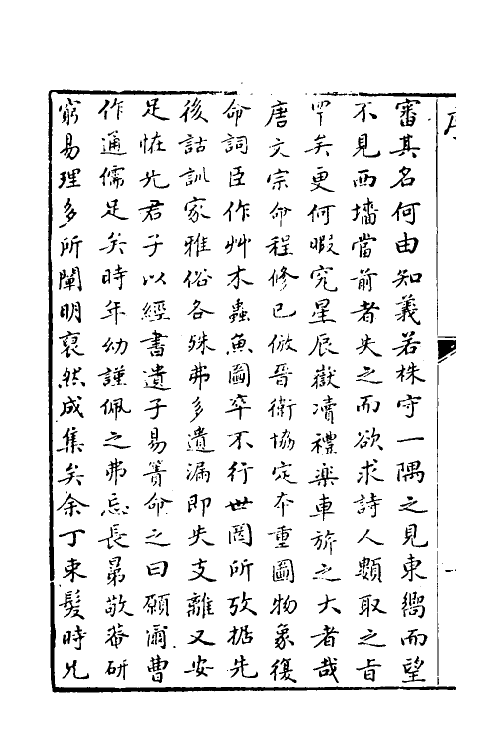 序
審其名何由知義若株守一隅之見東嚮而望
不見西墻當前者失之而欲求詩人顋取之旨
罕矣更何暇究星辰嶽瀆禮樂車旂之大者哉
唐文宗命程修己倣晉衛協定本重圖物象復
命詞臣作艸木蟲魚圖卒不行世罔所攷據先
後詁訓家雅俗各殊弗多遺漏即失支離又安
足恠先君子以經書遺子易簀命之曰願爾曹
作通儒足矣時年幼謹佩之弗忘長弟敬菴研
窮易理多所闡明裒然成集矣余丁束髮時凡